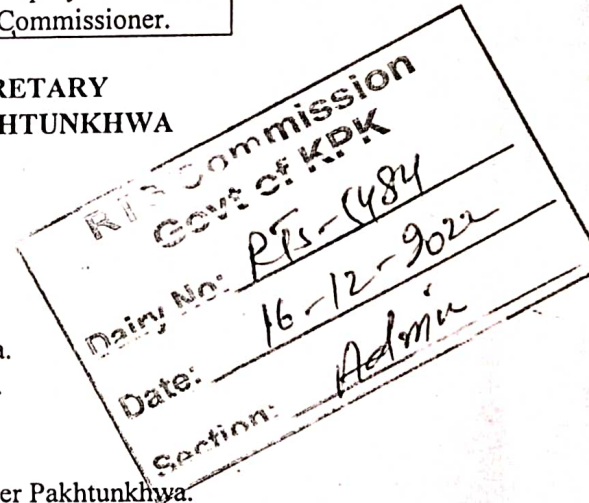 Commissioner.
RETARY
HTUNKHWA
RTS Commission
Govt of KPK
Dairy No:
Date: 16-12-2022
Section: Admin
a.
er Pakhtunkhwa.